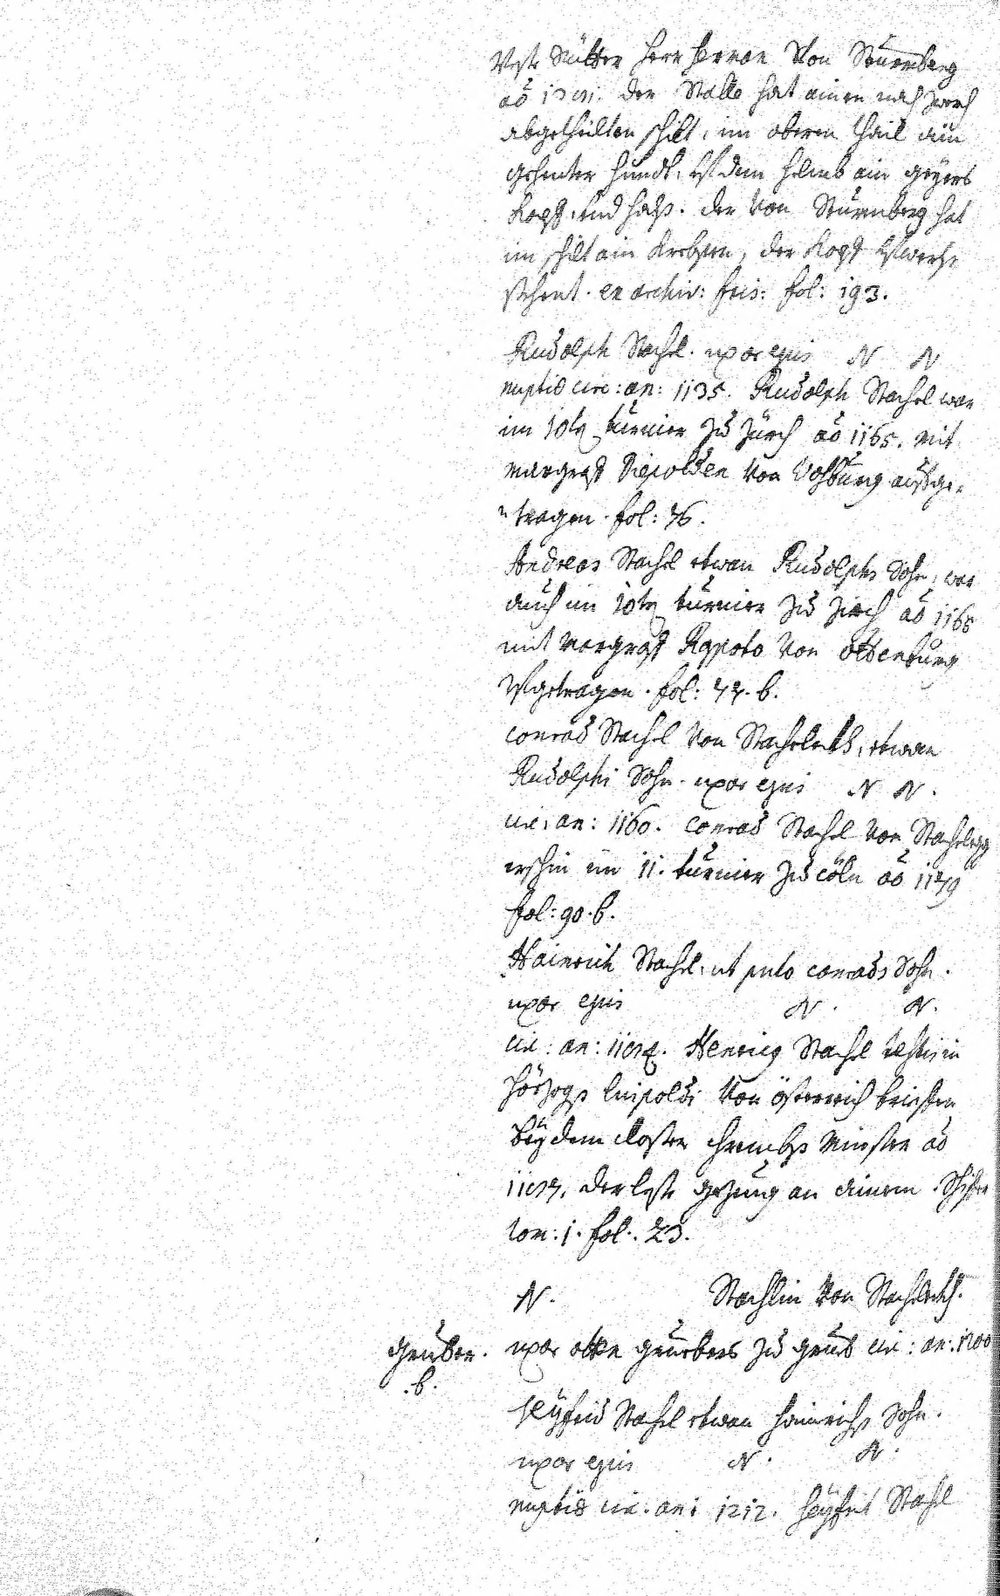 Veste Ritter Herr Herman Von Sturmberg
aō 1391. der Stahl hat ainen nach zwerch
abgetheilten schilt, im obern thail ain
gehenter hundt, Vf dem helmb ain geyers
Kopf, und halß. der Von Sturmberg hat
im schilt ain Krebsen, der Kopf Vfwerts
stehent. ex archiv: fris: fol: 193.
Rudolph Stachel. uxor ejus N N
nuptiis circ: an: 1135. Rudolph Stachel war
im 10tn turnier zu Zürch aō 1165. mit
margraf Diepolden Von Vohburg aufge-
tragen. fol: 76.
Andreas Stachel etwan Rudolphs Sohn, war
auch im 10tn turnier zu Zürch aō 1165
mit margraf Rapoto Von Ortenburg
Vfgetragen. fol: 77. b.
Conrad Stachel Von Stachelekh, etwan
Rudolphi Sohn. uxor ejus N N.
circ: an: 1160. Conrad Stachel Von Stachelegg
erschin im 11. turnier zu Cöln aō 1179
fol: 90. b.
Hainrich Stachel, ut puto Conrads Sohn.
uxor ejus N. N.
circ: an: 1194. Henricg Stachel testis in
Hörzogs Luipoldi Von Österreich briefen
bey dem Closter Chrembs Minster aō
1197. der leste gezeug an ainem
tom: 1. fol: 23.
N. Stachlin Von Stachelekh.
Gruber. uxor Otten Gruebers zu Grub circ: an: 1200
.b.
Seyfrid Stachel etwan Hainrichs Sohn.
uxor ejus N. N.
nuptiis circ: an: 1212. Seyfrit Stachl